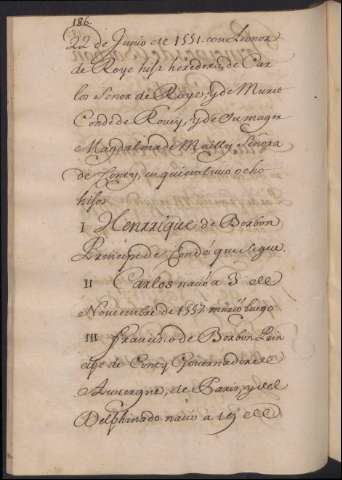 186.
22 de Junio de 1551. con Leonor
de Roye hija heredera de Car
los Senor de Roye, y de Murie
Conde de Roucy, y de su muger
Magdalena de Mailly Señora
de Concy, en quien tuvo ocho
hijos
I Henrrique de Borbon
Principe de Condé que sigue.
II Carlos nació a 3 de
Noviembre de 1557 murió luego
III Francisco de Borbon Prin
cipe de Concy Governador de
Auvergne, de Paris, y del
Delphinado nació à 19 de